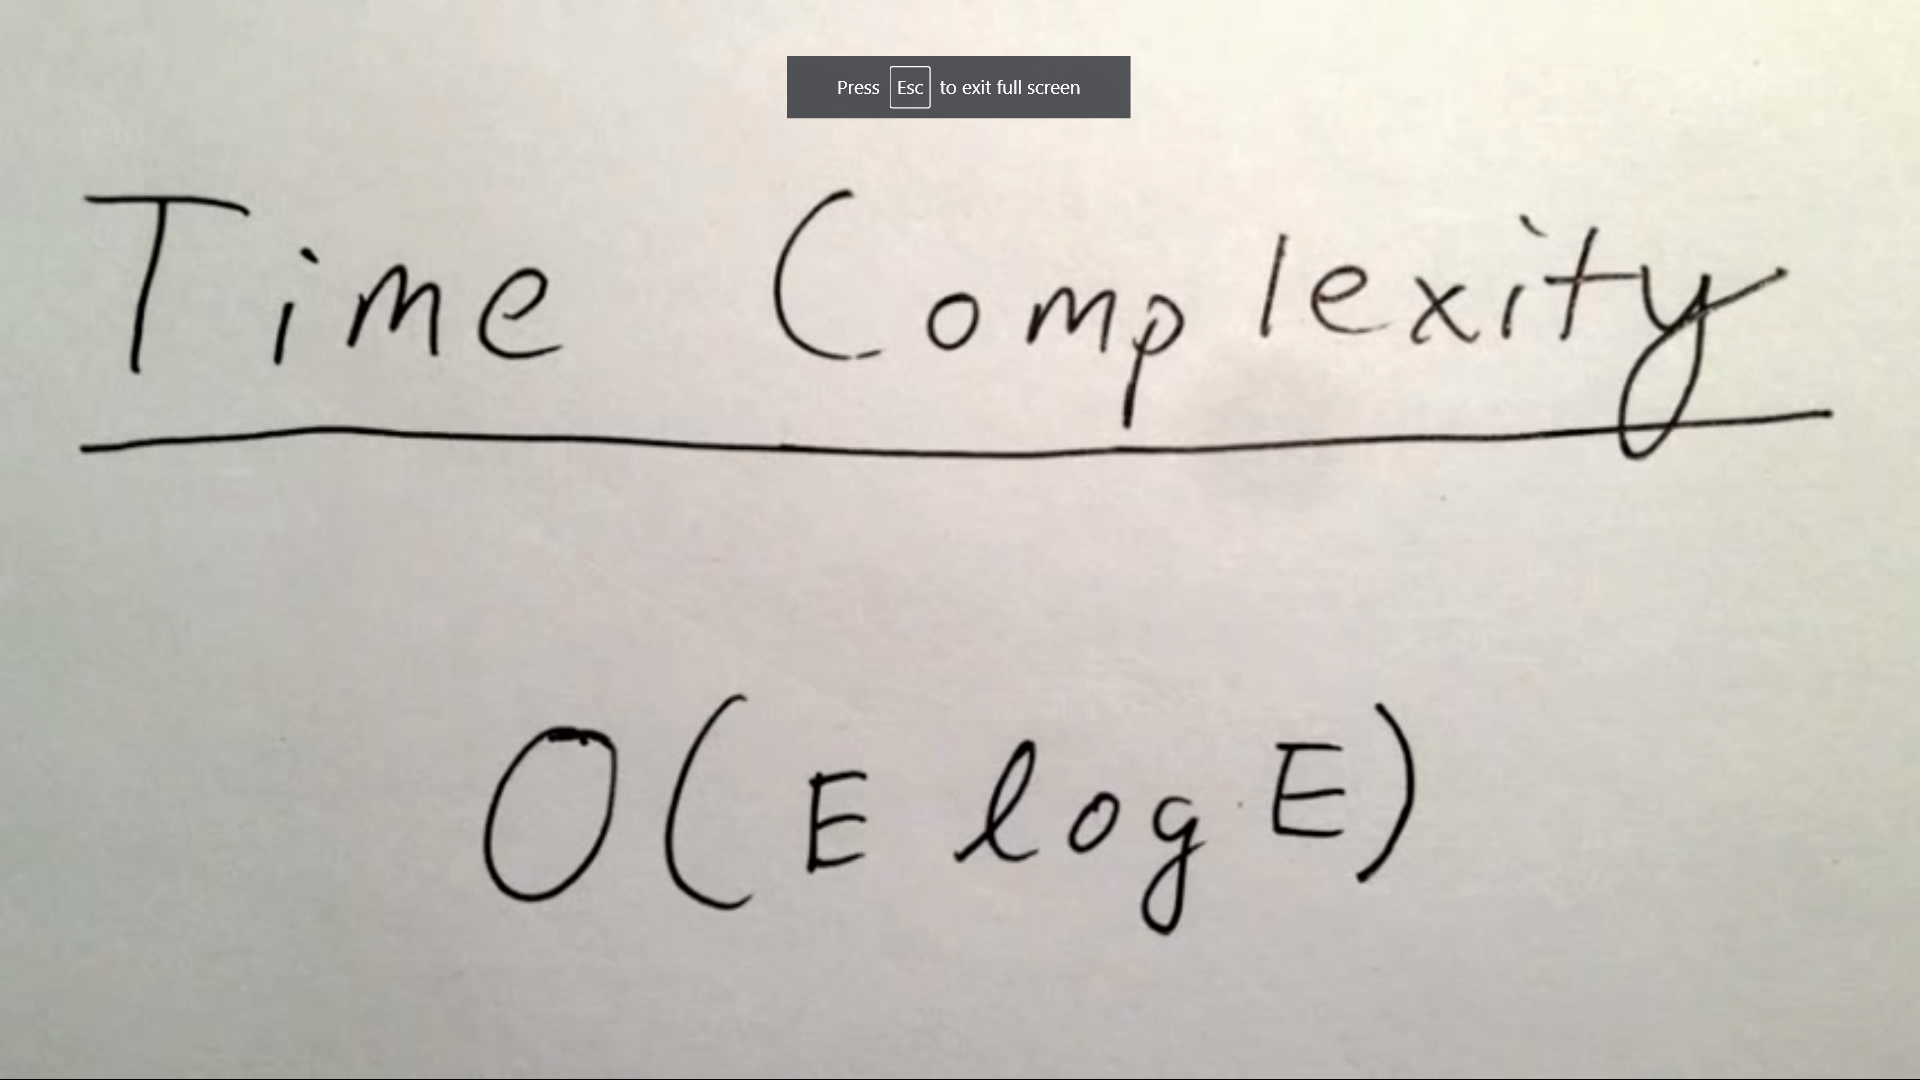 Press Esc to exit full screen
Time Complexity
O(E log E)